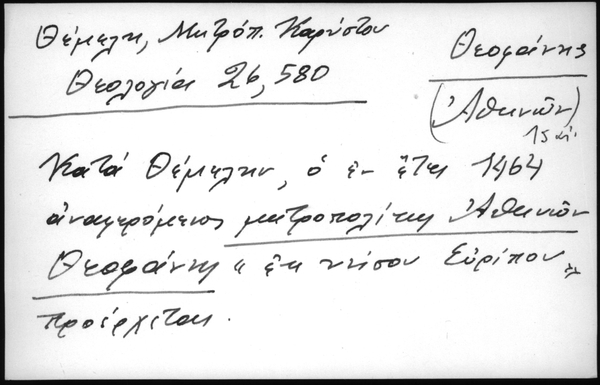 Θέμελη, Μητρόπ. Καρύστου
Θεολογία 26, 580
Θεοφάνης
(Ἀθηνῶν)
15 αἰ.
Κατά Θέμελην, ὁ ἐν ἔτει 1464
ἀναφερόμενος μητροπολίτης Ἀθηνῶν
Θεοφάνης "ἐκ νήσου Εὐρίπου"
προέρχεται.